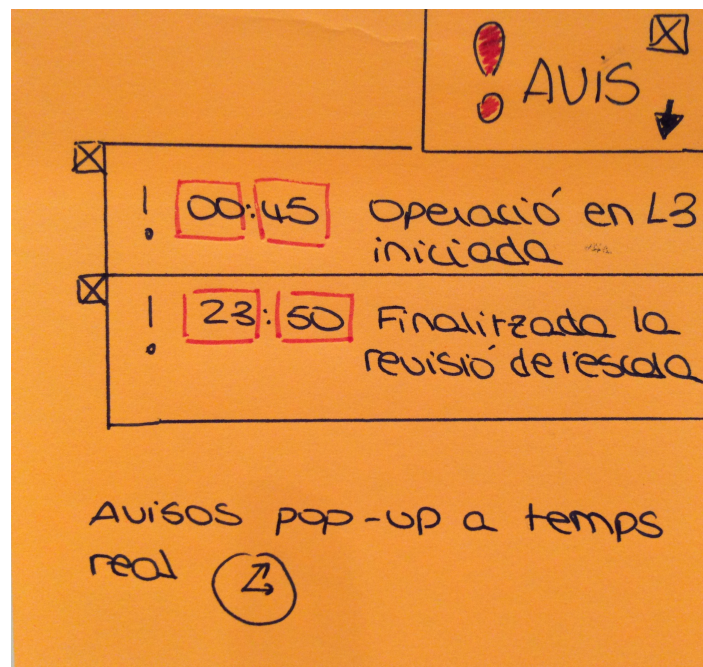 ! AVÍS
! 00:45 Operació en L3
iniciada
! 23:50 Finalitzada la
revisió de l'escala
Avisos pop-up a temps
real